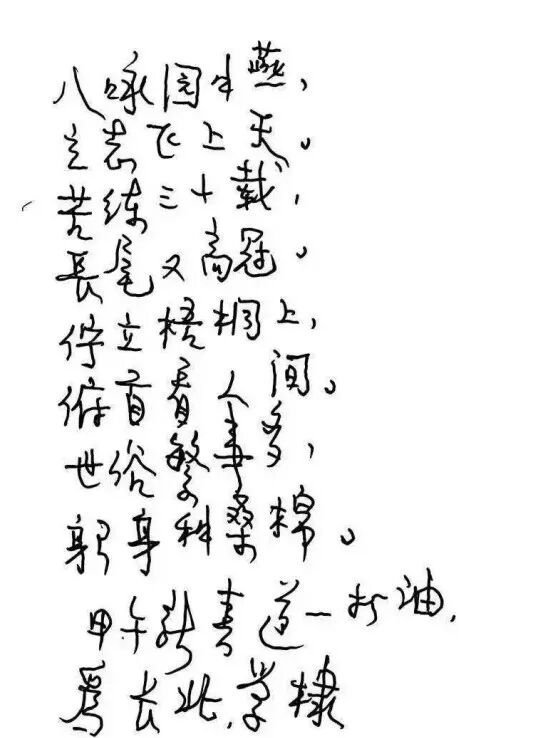 八咏园中燕，
立志飞上天。
苦练三十载，
長尾又高冠。
伫立梧桐上，
俯首看人间。
世俗繁事多，
躬身种桑棉。
甲午新春道一打油，
為长北学棣